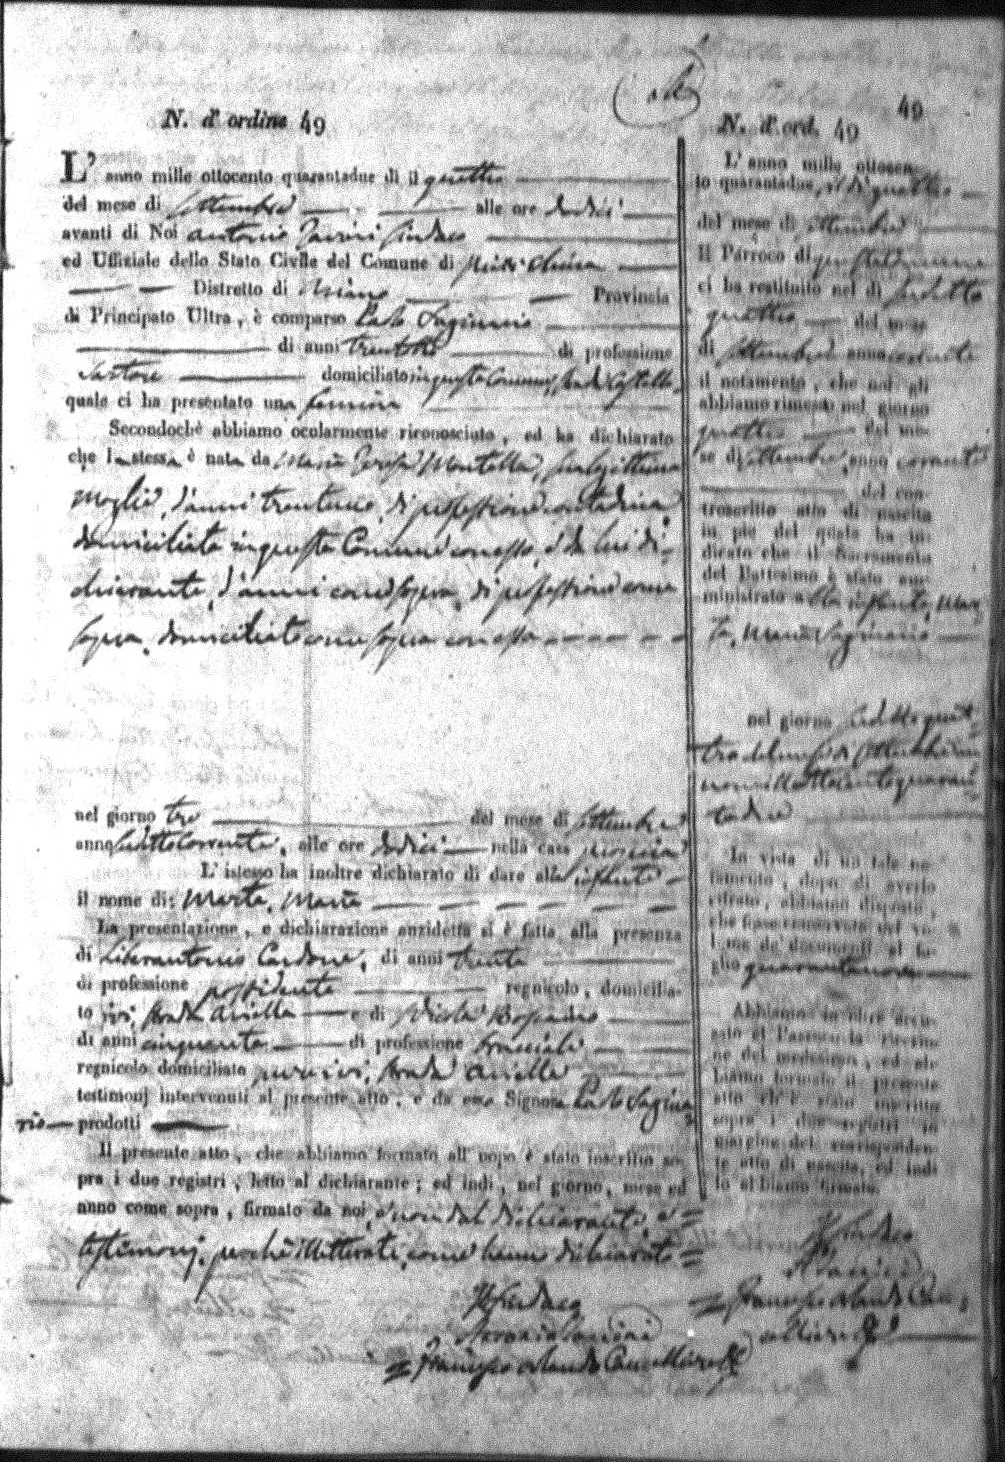 49
N. d' ordine 49
L' anno mille ottocento quarantadue dì il quattro
del mese di settembre alle ore dodici
avanti di Noi Antonio Sindaco
ed Uffiziale dello Stato Civile del Comune di
Distretto di Ariano Provincia
di Principato Ultra, è comparso Paolo
di anni trentotto di professione
Sartore domiciliato in questo Comune, strada Castello
quale ci ha presentato una femina
Secondochè abbiamo ocularmente riconosciuto, ed ha dichiarato
che la stessa è nata da Maria Teresa Montella, sua legittima
moglie, d'anni trentuno, di professione contadina
domiciliata in questo Comune con esso, e da lui di-
chiarante, d'anni come sopra, di professione come
sopra, domiciliato come sopra con essa
nel giorno tre del mese di settembre
anno suddetto corrente, alle ore dodici nella casa propria
L' istesso ha inoltre dichiarato di dare alla infante
il nome di: Marta, Maria
La presentazione, e dichiarazione anzidetta si è fatta alla presenza
di Liberantonio Cardone, di anni trenta
di professione possidente regnicolo, domicilia-
to ivi, strada Ariella e di Nicola
di anni cinquanta di professione bracciale
regnicolo domiciliato pure ivi, strada Ariella
testimonj intervenuti al presente atto, e da esso Signor Paolo
rio prodotti
Il presente atto, che abbiamo formato all' uopo è stato inscritto so-
pra i due registri, letto al dichiarante; ed indi, nel giorno, mese ed
anno come sopra, firmato da noi, e non dal dichiarante, e =
testimonj, perchè illetterati, come hanno dichiarato =
Il Sindaco
Antonio
= Francesco Orlando Cancelliere
N. d' ord. 49
L' anno mille ottocen-
to quarantadue, il dì quattro
del mese di settembre
Il Parroco di questo Comune
ci ha restituito nel dì suddetto
quattro del mese
di settembre anno corrente
il notamento, che noi gli
abbiamo rimesso nel giorno
quattro del me-
se di settembre anno corrente
del con-
troscritto atto di nascita
in piè del quale ha in-
dicato che il Sacramento
del Battesimo è stato am-
ministrato a lla infante, Mar-
ta, Maria
nel giorno suddetto quat-
tro del mese di settembre an-
no mille ottocento quaran-
tadue
In vista di un tale no-
tamento, dopo di averlo
cifrato, abbiamo disposto,
che fosse conservato nel vo-
lume de' documenti al fo-
glio quarantanove
Abbiamo inoltre accu-
sato al Parroco la ricezio-
ne del medesimo, ed ab-
biamo formato il presente
atto ch' è stato inscritto
sopra i due registri in
margine del corrisponden-
te atto di nascita, ed indi
lo abbiamo firmato.
Il Sindaco
= Francesco Orlando Can-
celliere